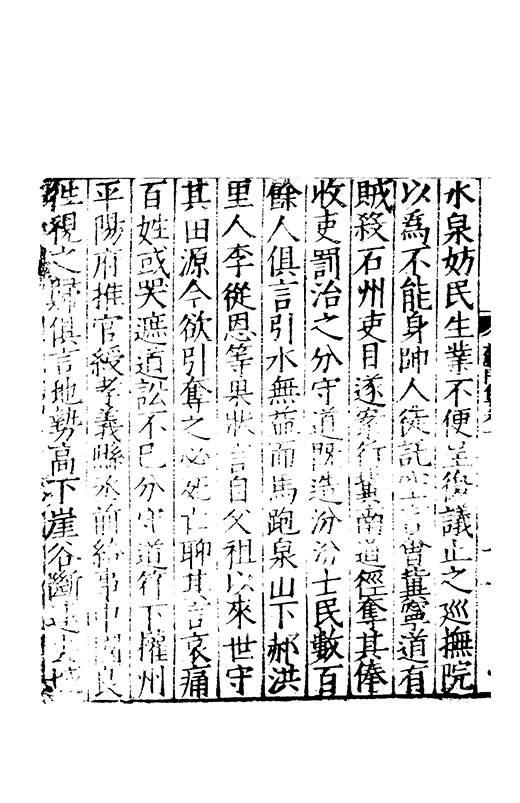 水泉妨民生業不便呈後議止之廵撫院
以為不能身帥人徒託空言會冀寧道有
賊殺石州吏目遂寮行冀南道徑奪其俸
收吏罰治之分守道既造汾汾士民數百
餘人俱言引水無益而馬跑泉山下郝洪
里人李從恩等果狀言自父祖以來世守
其田源今欲引奪之必死亡聊其言哀痛
百姓或哭遮道訟不已分守道符下攉州
平陽府推官經孝義縣丞前給事中周良
往視之歸俱言地勢高下崖谷斷